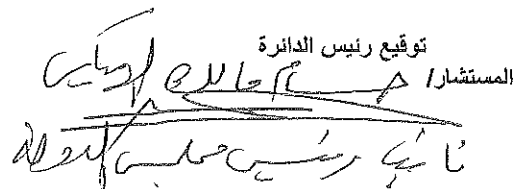 توقيع رئيس الدائرة
المستشار/ حسام
نائب رئيس مجلس الدولة